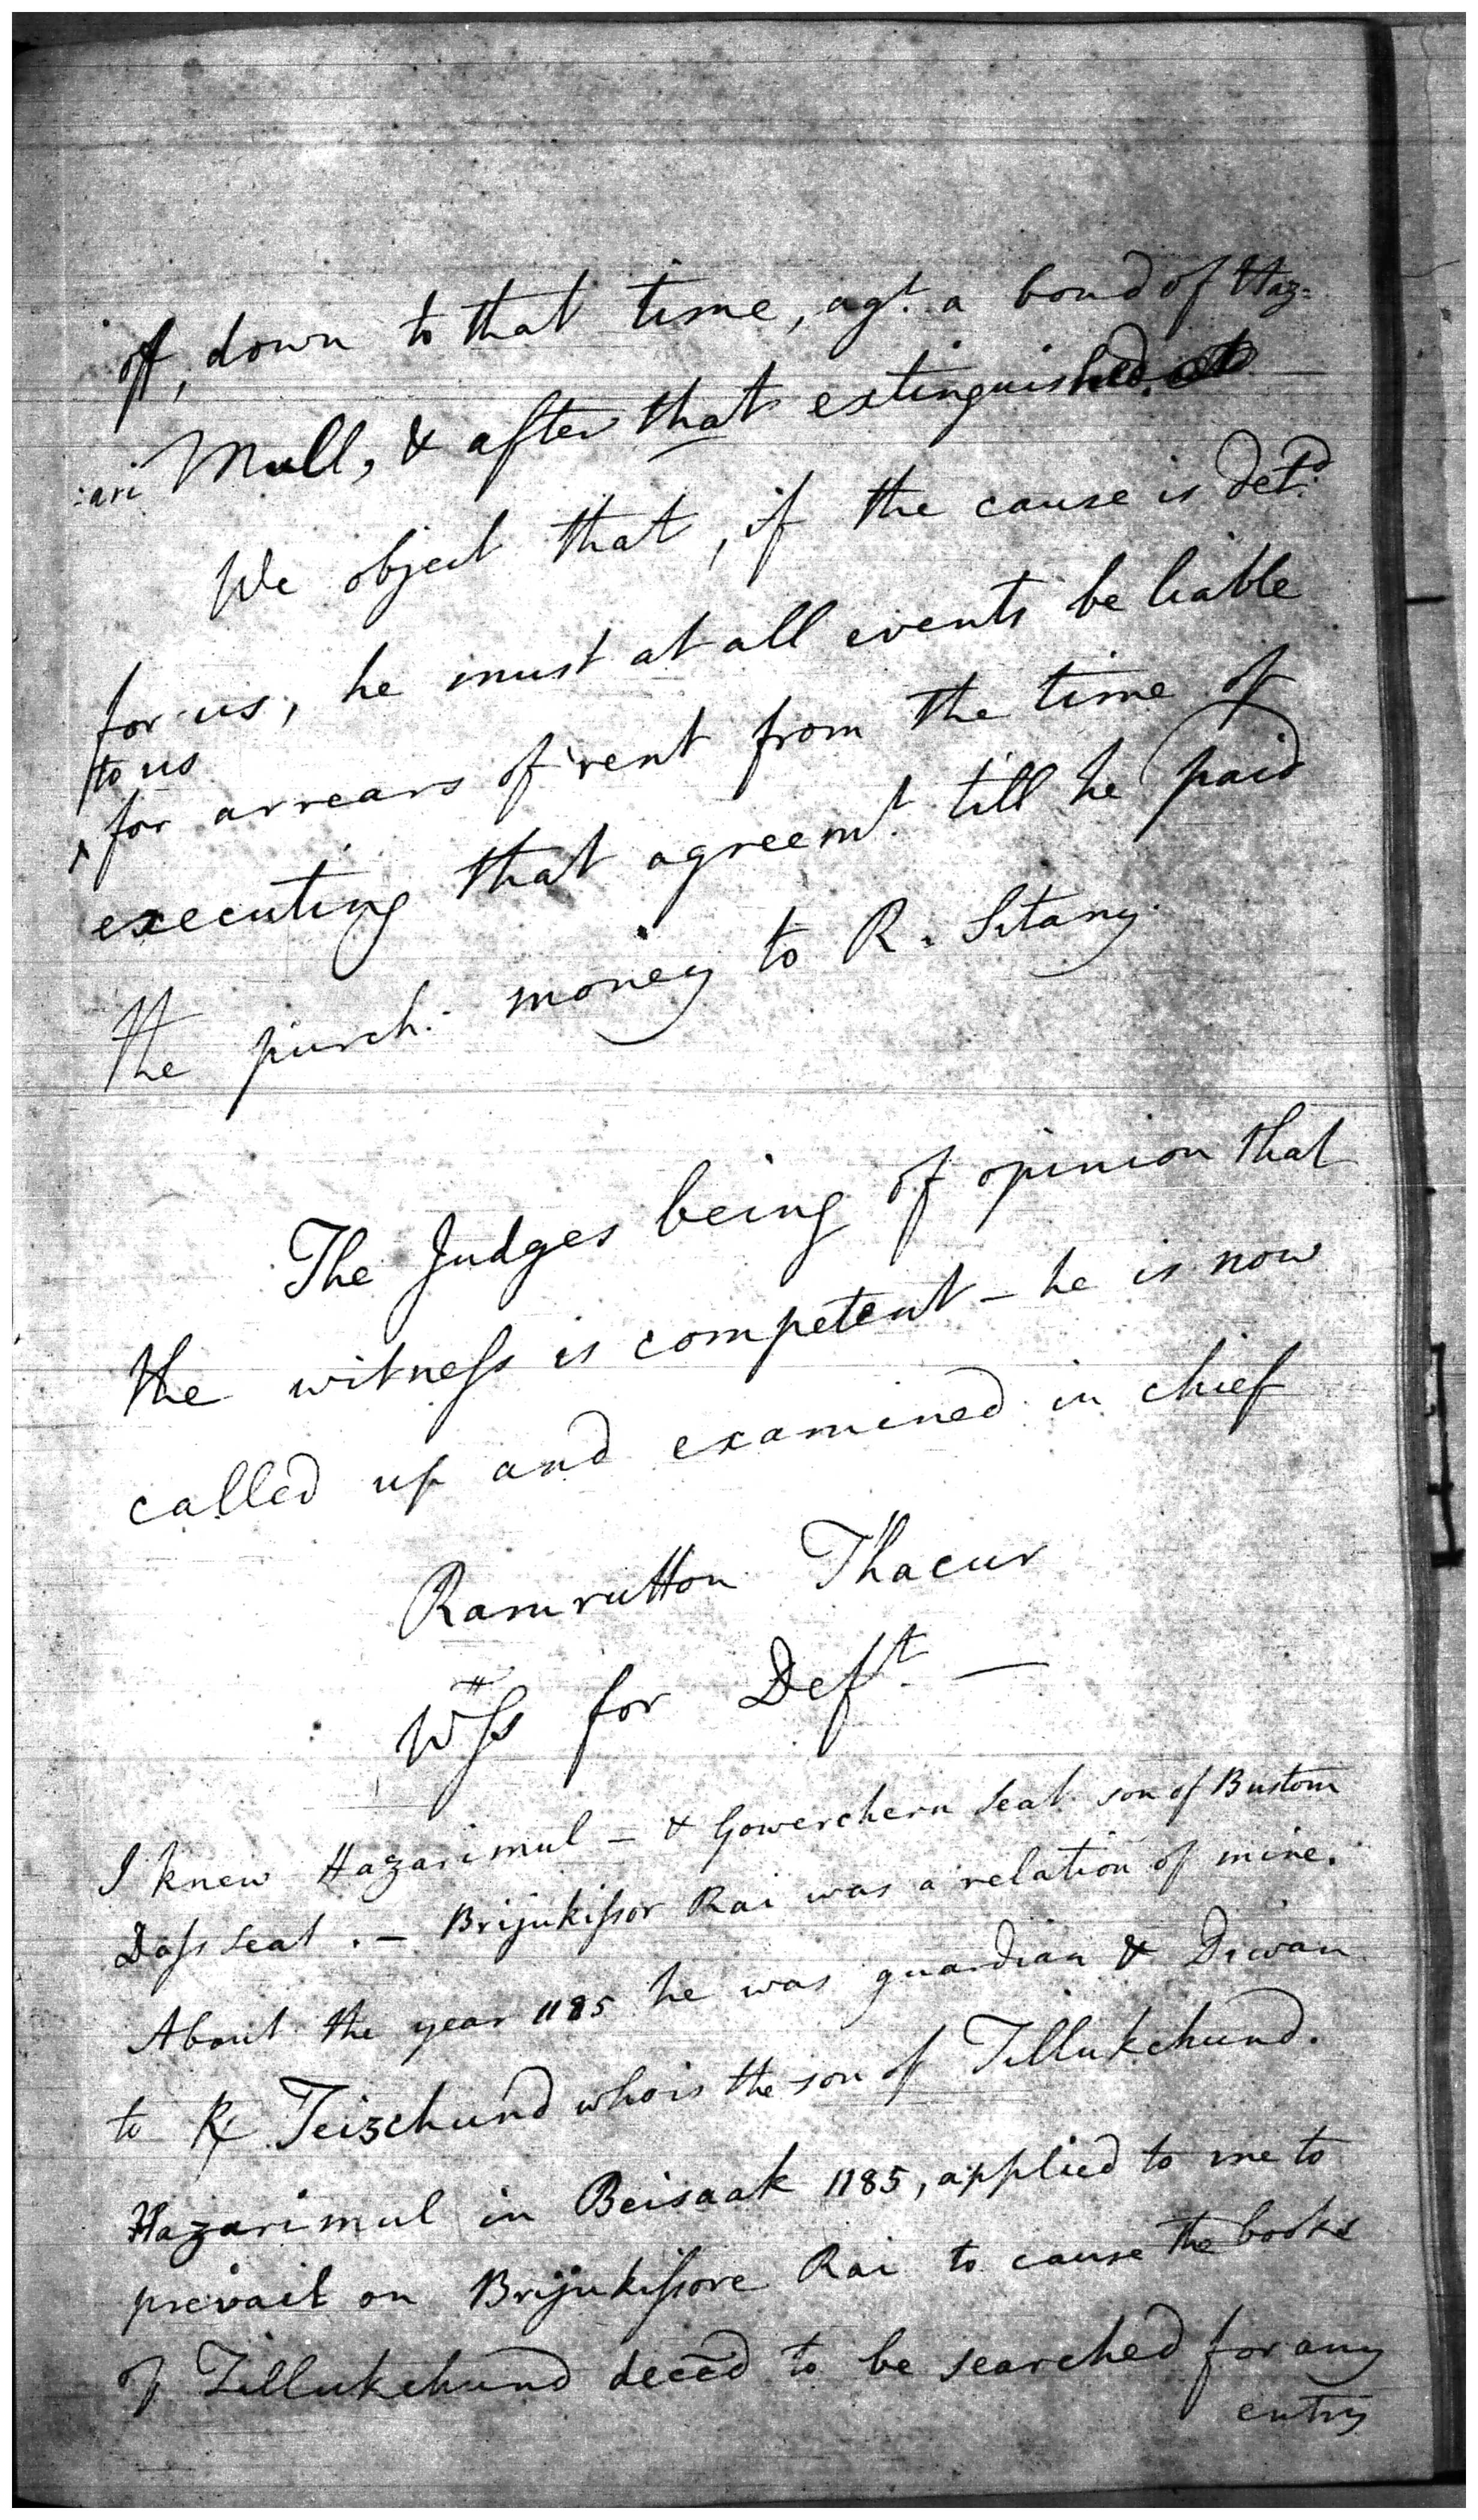 off, down to that time, agt. a bond of Haz=
:ari Mull, & after that extinguished.
We object that, if the cause is detd.
for us, he must at all events be liable
to us
^ for arrears of rent from the time of
executing that agreemt. till he paid
the purch. money to R. Sitany.
The Judges being of opinion that
the witness is competent – he is now
called up and examined in chief
Ramrutton Thacur
Wss for Deft. —
I knew Hazarimul – & Gowerchern Seat son of Bustom
Dass Seat. – Brijukissor Rai was a relation of mine.
About the year 1185 he was guardian & Diwan
to R Teizchund who is the son of Tillukchund.
Hazarimul in Beisaak 1185, applied to me to
prevail on Brijukissore Rai to cause the books
of Tillukchund deced to be searched for any
entry